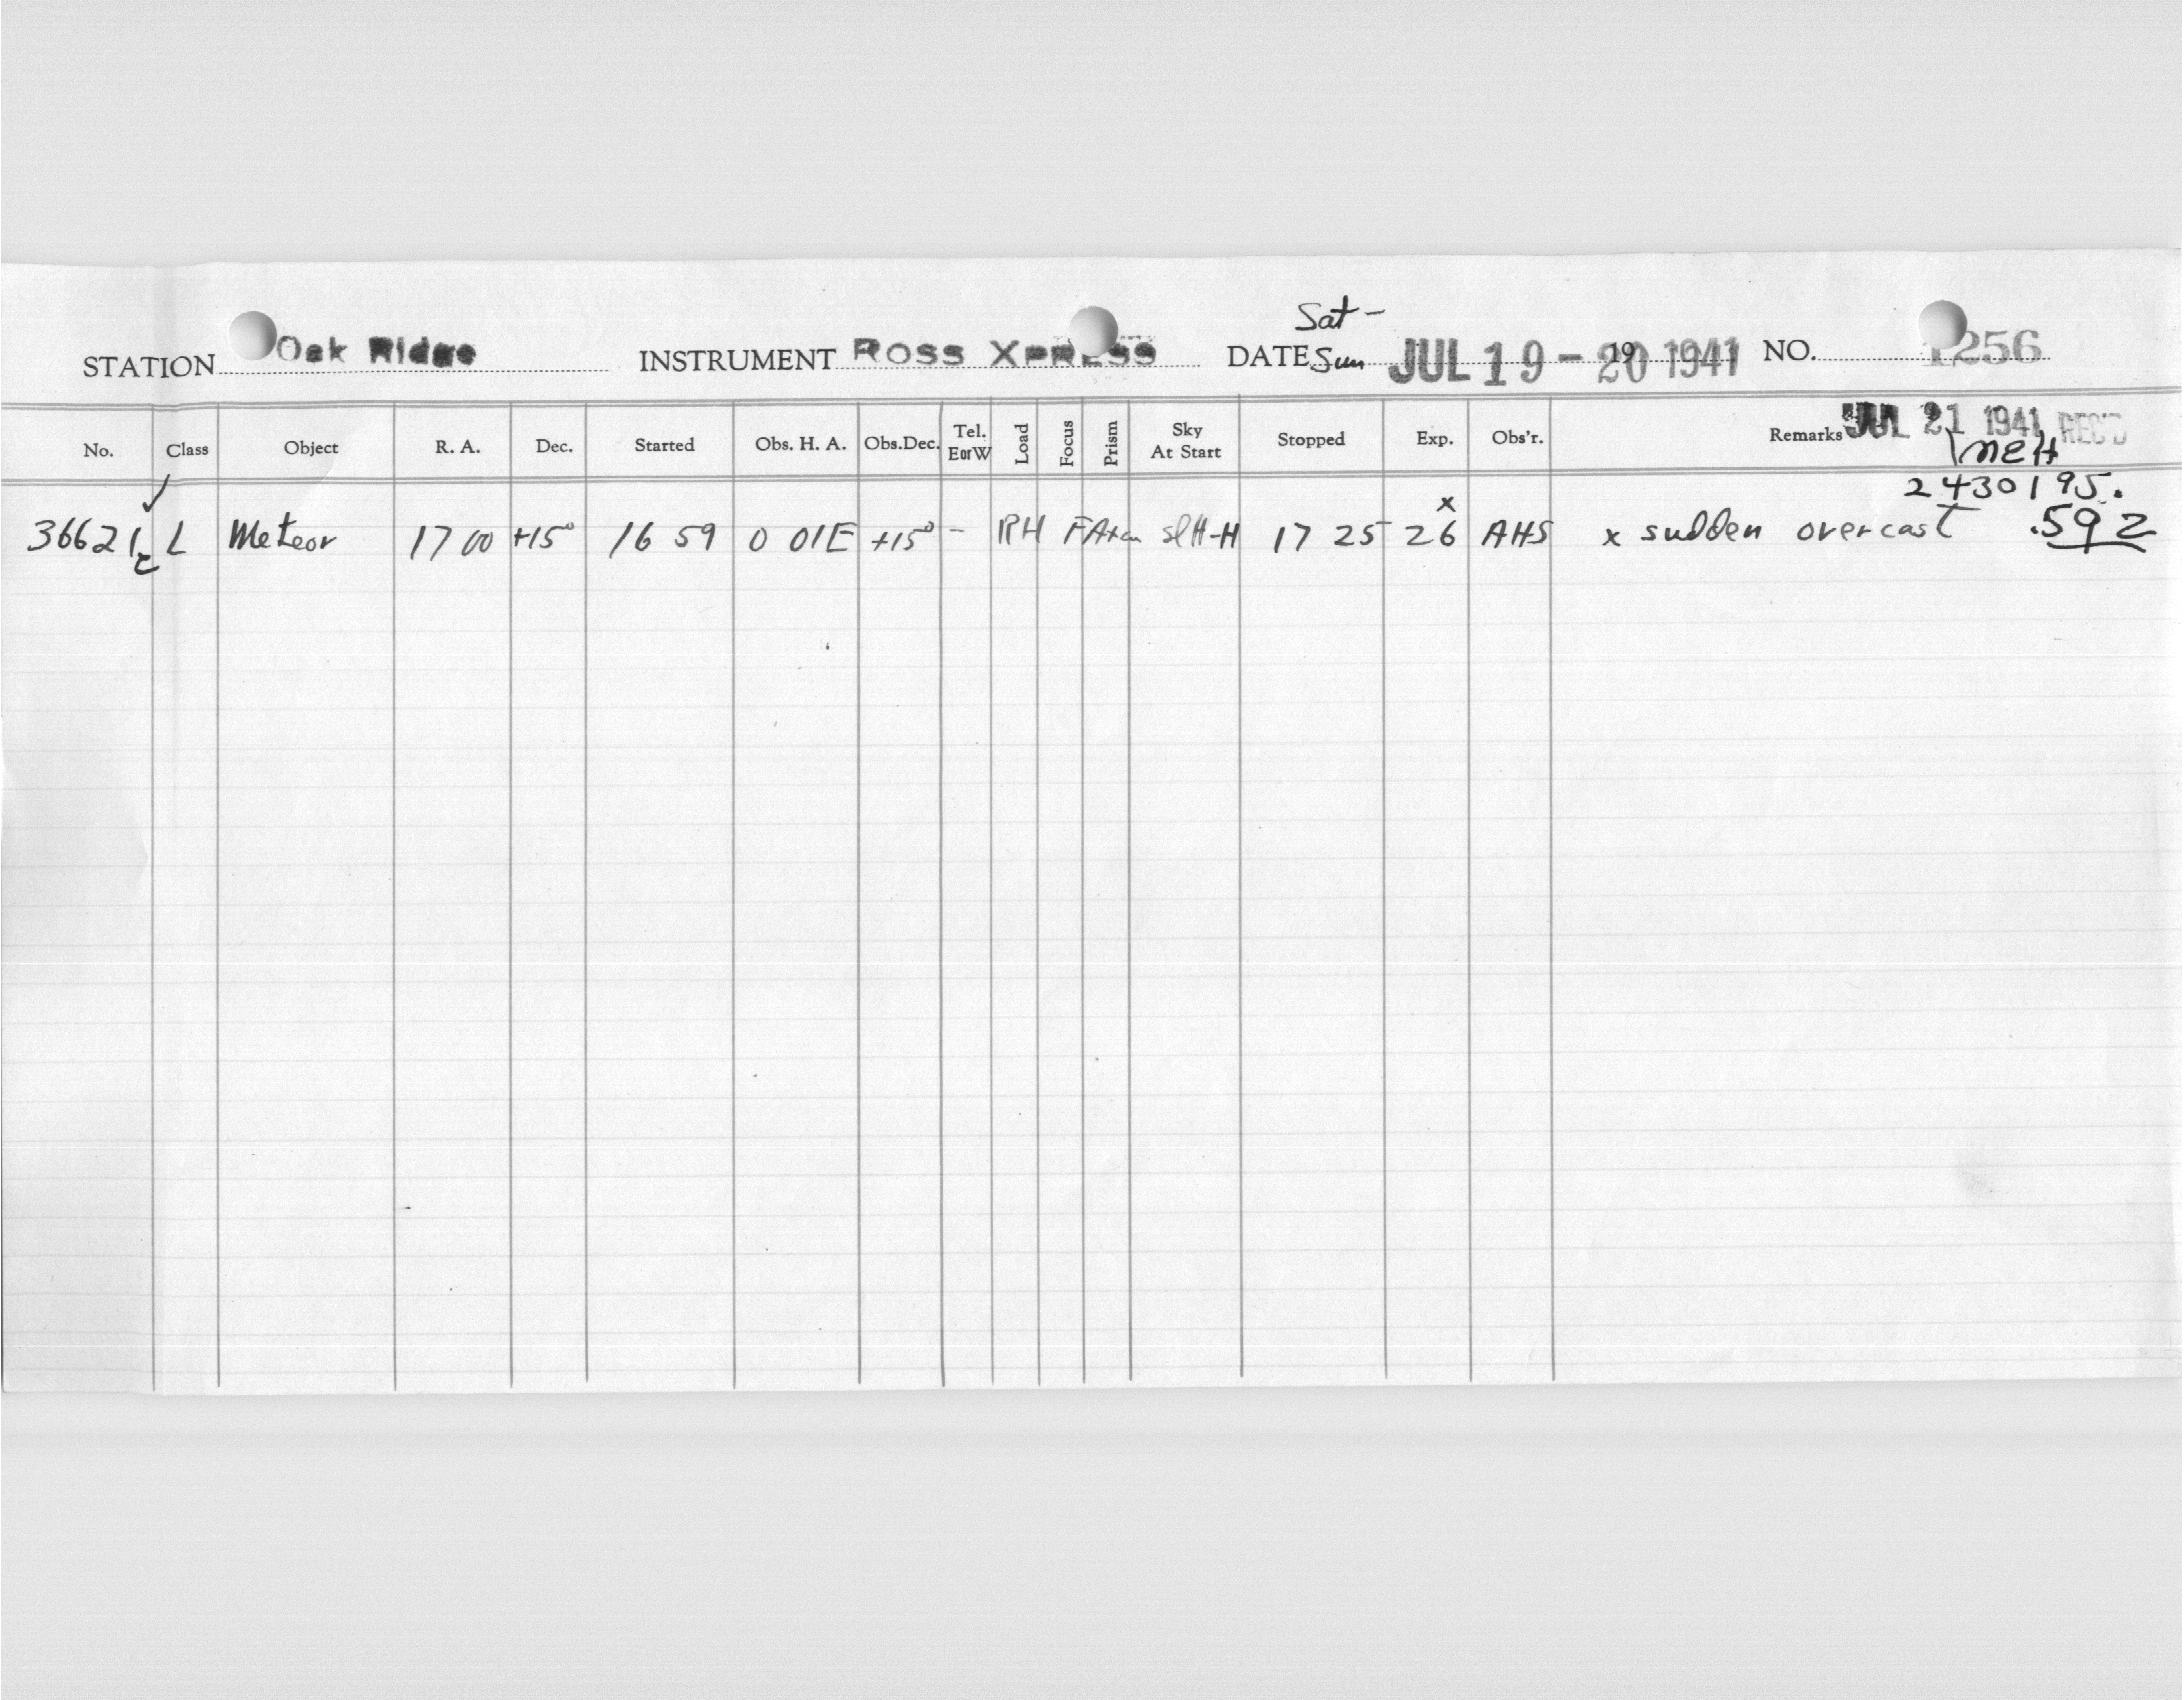 Sat -
STATION Oak Ridge INSTRUMENT ROSS XPRESS DATE Sun JUL 19 - 20 19 1941 NO. 1256
No. Class Object R. A. Dec. Started Obs. H. A. Obs.Dec. Tel. EorW Load Focus Prism Sky At Start Stopped Exp. Obs'r. Remarks JUL 21 1941 REC'D
MEH
2430195.
36621 L Meteor 17 00 +15° 16 59 0 01E +15° - RH slH-H 17 25 26 x AHS x sudden overcast .592